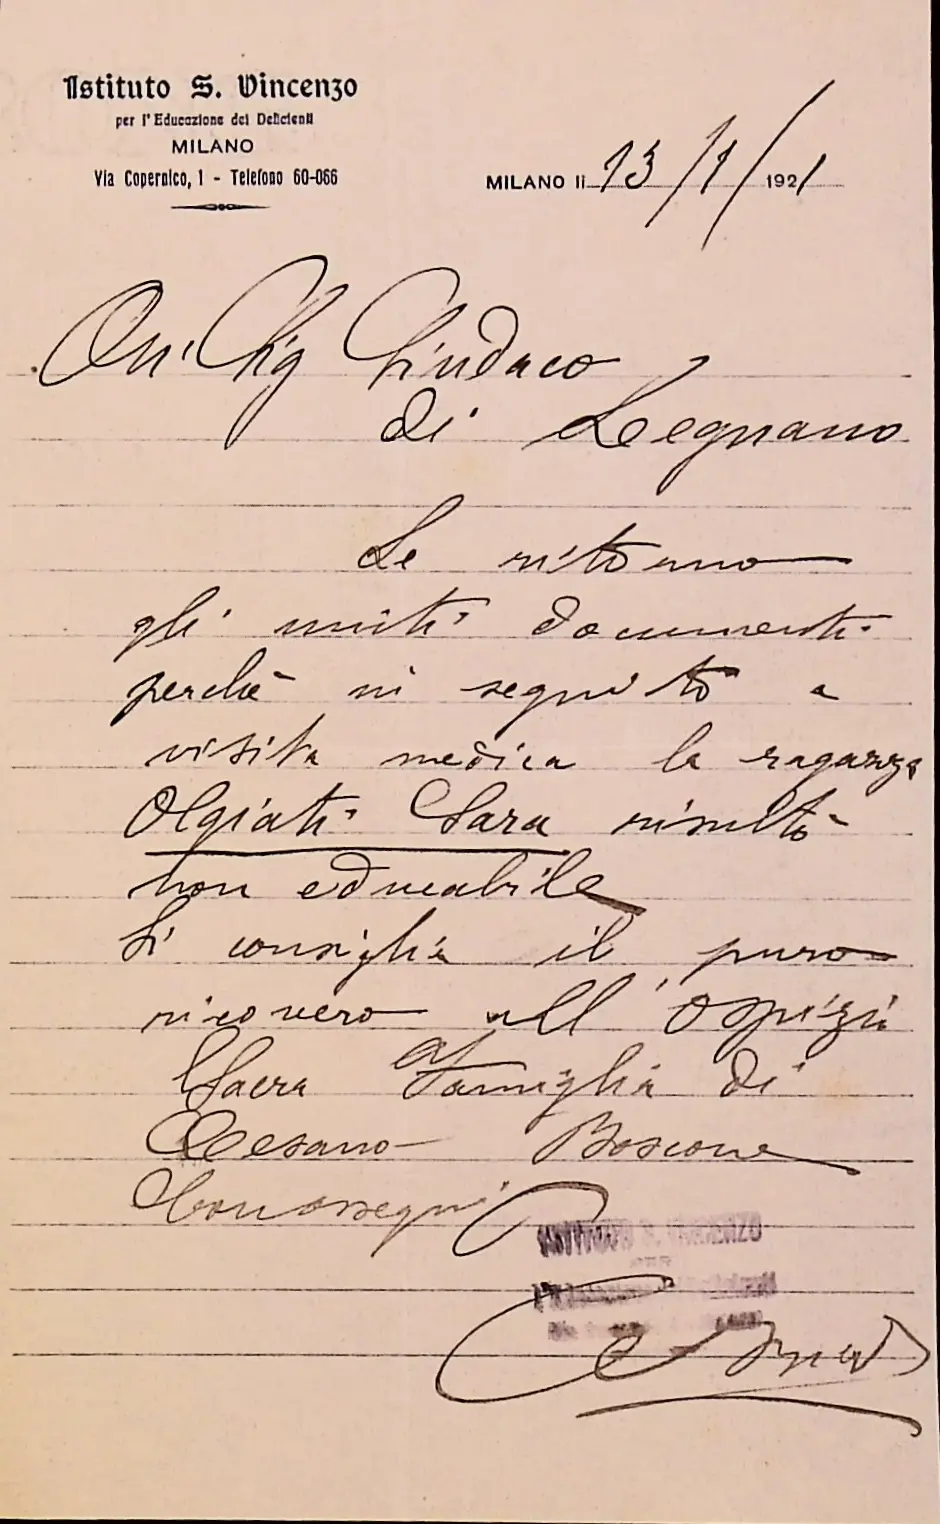 Istituto S. Vincenzo
per l'Educazione dei Deficienti
MILANO
Via Copernico, 1 - Telefono 60-066
MILANO li 13/1/1921
On. Sig Sindaco
di Legnano
Le ritorno
gli uniti documenti
perchè in seguito a
visita medica la ragazza
Olgiati Sara risultò
non educabile
Si consiglia il puro
ricovero all'Ospizio
Sacra Famiglia di
Cesano Boscone
Con ossequi
ISTITUTO S. VINCENZO